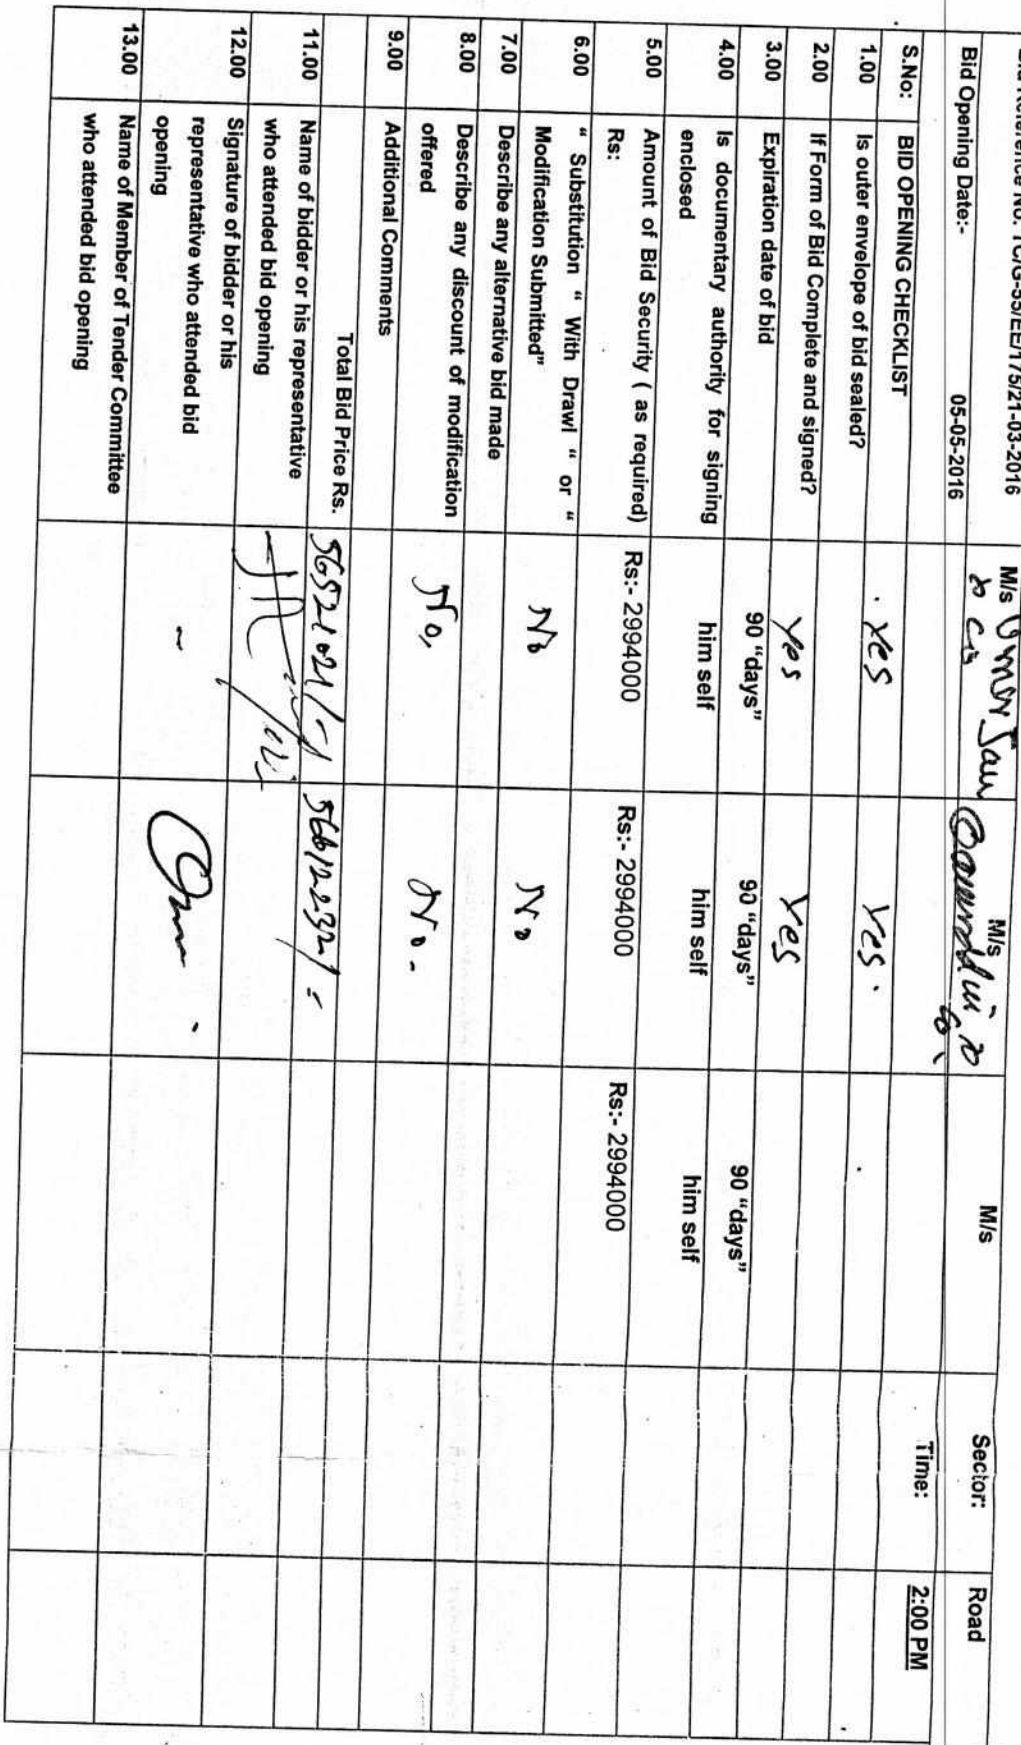 Bid Reference No. TC/G-55/EE/175/21-03-2016
Bid Opening Date:- 05-05-2016 M/s Umer Jan & Co M/s M/s Sector: Road
S.No: BID OPENING CHECKLIST Time: 2:00 PM
1.00 Is outer envelope of bid sealed? Yes Yes.
2.00 If Form of Bid Complete and signed? Yes Yes
3.00 Expiration date of bid 90 “days” 90 “days” 90 “days”
4.00 Is documentary authority for signing
enclosed him self him self him self
5.00 Amount of Bid Security ( as required)
Rs: Rs:- 2994000 Rs:- 2994000 Rs:- 2994000
6.00 “ Substitution “ With Drawl “ or “
Modification Submitted” No No
7.00 Describe any alternative bid made
8.00 Describe any discount of modification
offered No, No.
9.00 Additional Comments
Total Bid Price Rs. 56521021/- 56612232/=
11.00 Name of bidder or his representative
who attended bid opening
12.00 Signature of bidder or his
representative who attended bid
opening
13.00 Name of Member of Tender Committee
who attended bid opening